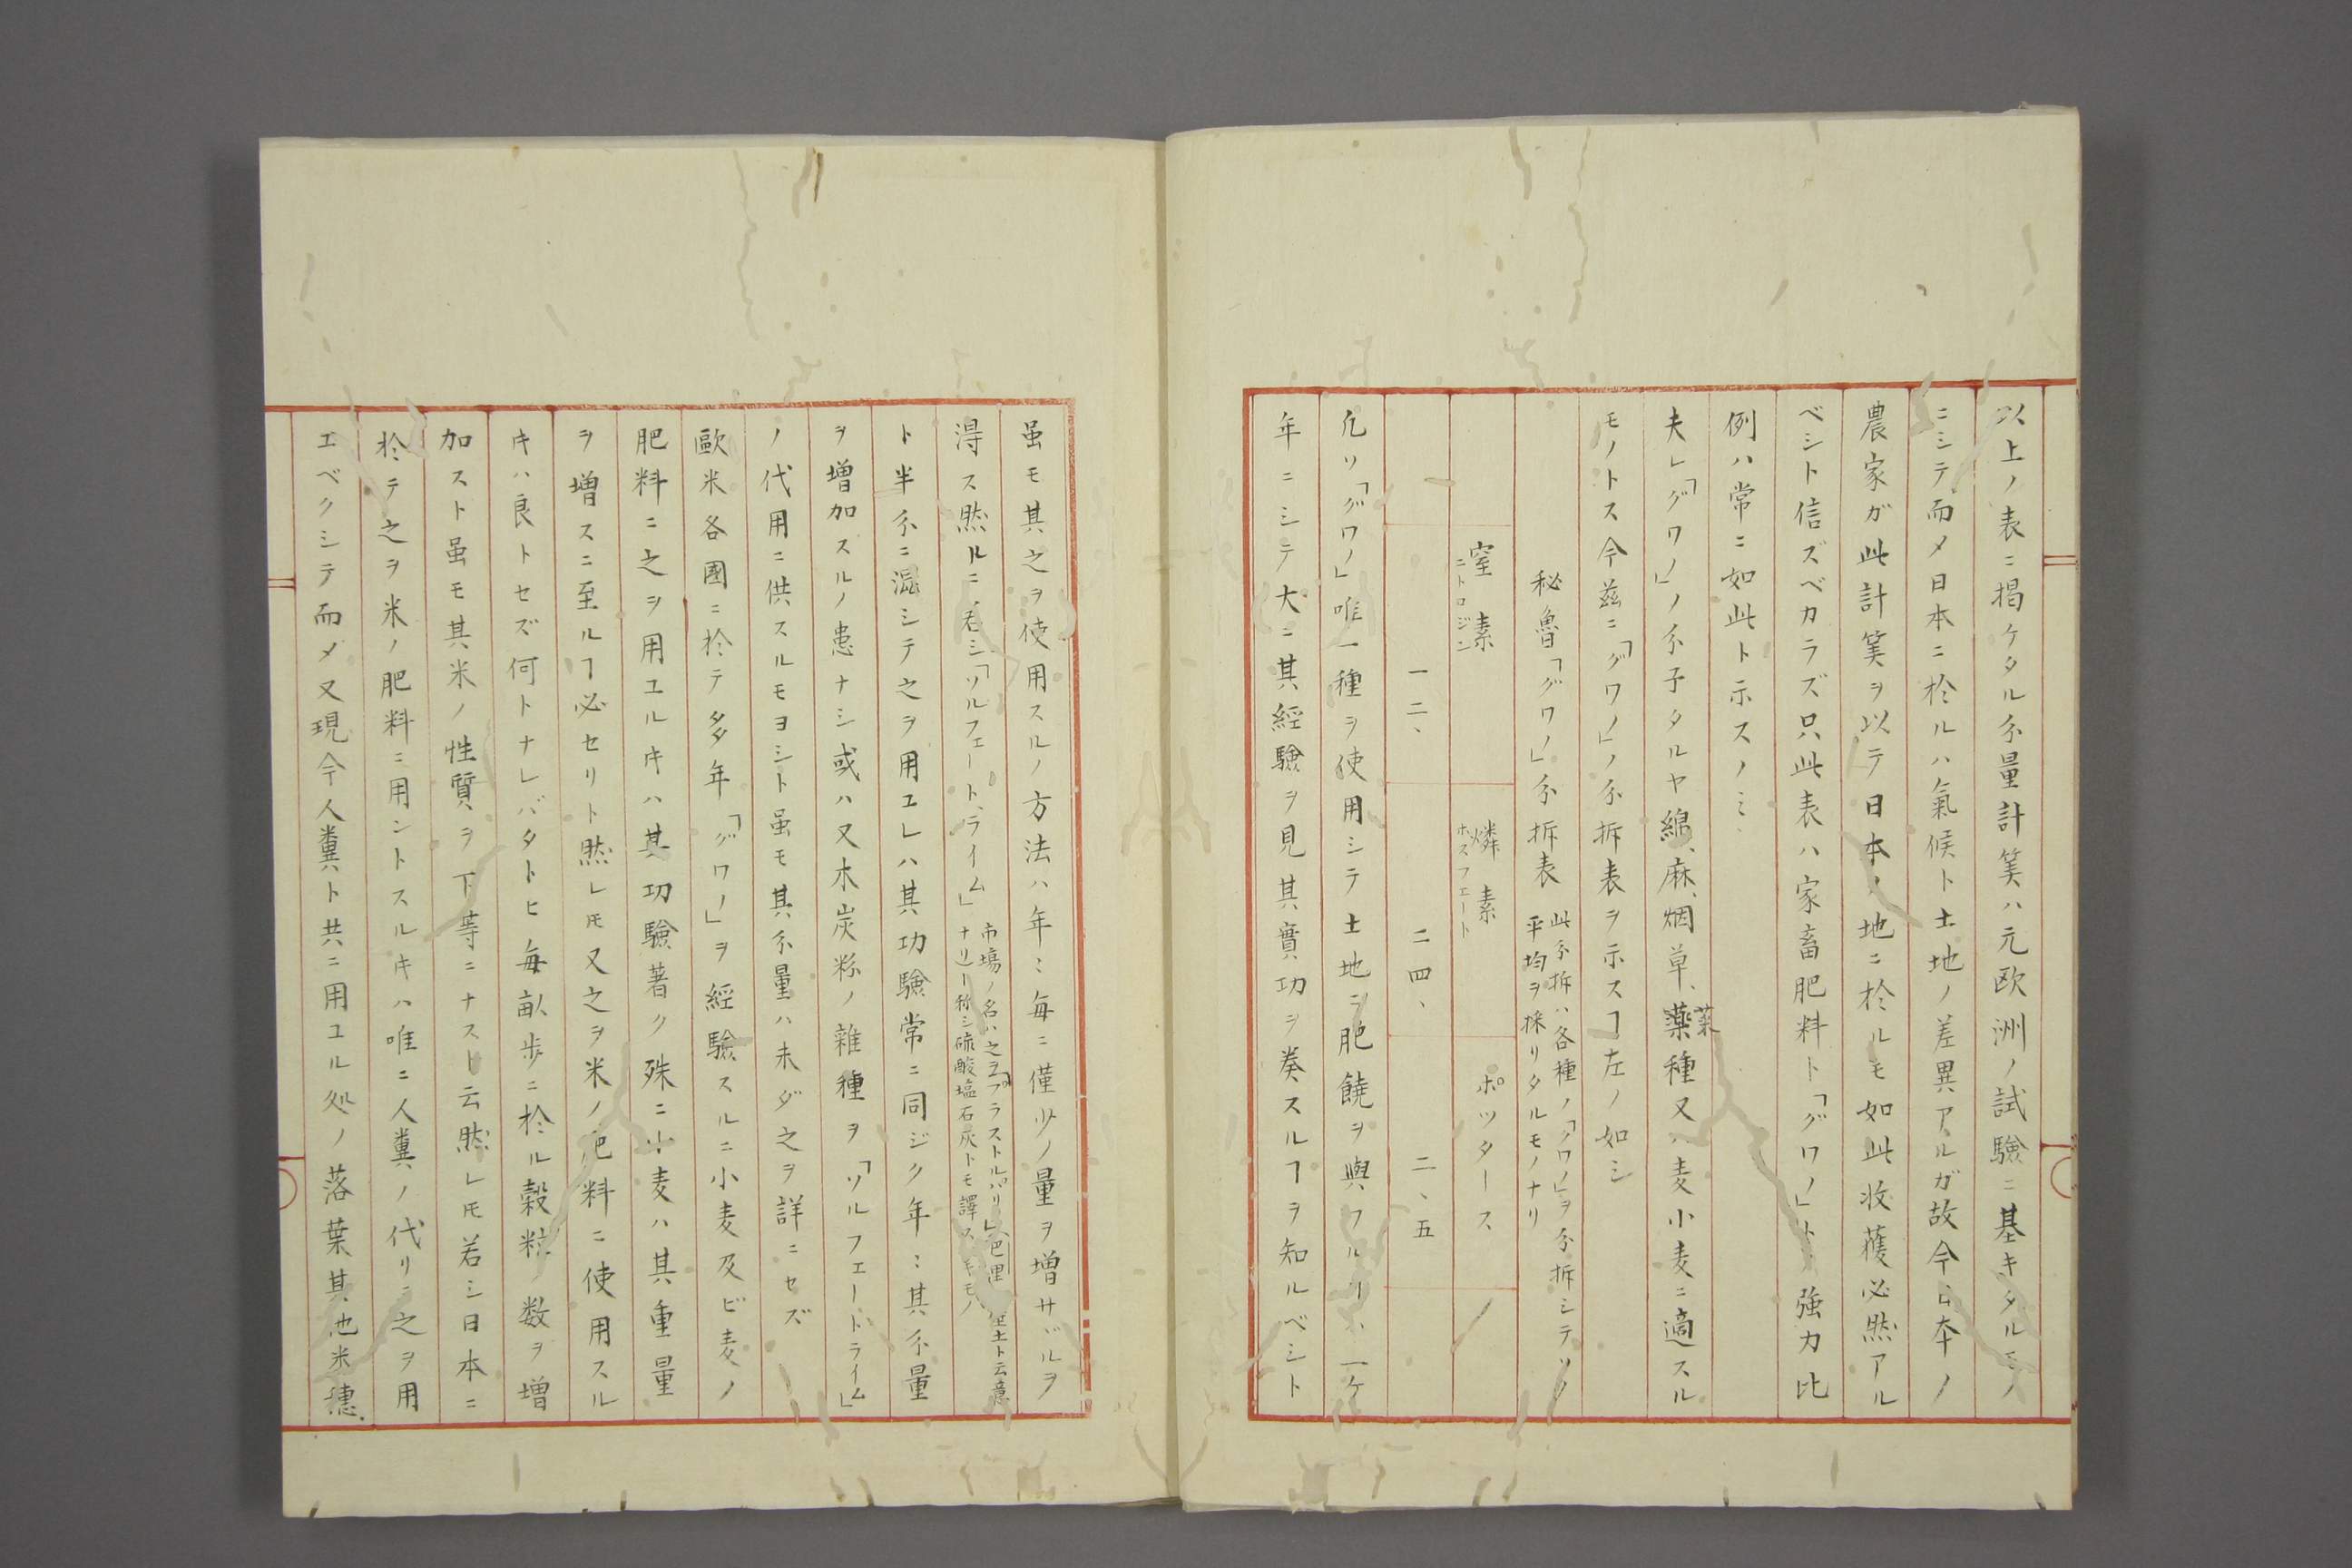 以上ノ表ニ掲ケタル分量計筭ハ元欧洲ノ試驗ニ基キタルモノ
ニシテ而メ日本ニ於ルハ氣候ト土地ノ差異アルガ故今日本ノ
農家ガ此計筭ヲ以テ日本ノ地ニ於ルモ如此收穫必然アル
ベシト信ズベカラズ只此表ハ家畜肥料ト「グワノ」ト強力比
例ハ常ニ如此ト示スノミ
夫レ「グワノ」ノ分子タルヤ綿、麻、烟草、藥種又ハ麦小麦ニ適スル
菜
モノトス今茲ニ「グワノ」ノ分拆表ヲ示スヿ左ノ如シ
秘魯「グワノ」分拆表
此分拆ハ各種ノ「グワノ」ヲ分拆シテソノ
平均ヲ採リタルモノナリ
窒素
ニトロジン
燐素
ホスフェート
ポッタース
一二、
二四、
二、五
凢ソ「グワノ」唯一種ヲ使用シテ土地ニ肥饒ヲ與フルハ一ケ
年ニシテ大ニ其經驗ヲ見其實功ヲ奏スルヿヲ知ルベシト
虽モ其之ヲ使用スルノ方法ハ年ミ毎ニ僅少ノ量ヲ増サヾルヲ
得ス然ルニ若シ「ソルフェート、ライム」
市塲ノ名ハ之ヲ「プラストルパリ」巴里
ナリト称シ硫酸塩石灰トモ譯ス
ト半分ニ混シテ之ヲ用エレハ其功驗常ニ同ジク年ミ其分量
ヲ増加スルノ患ナシ或ハ又木炭粉ノ雜種ヲ「ソルフェートライム」
ノ代用ニ供スルモヨシト虽モ其分量ハ未ダ之ヲ詳ニセズ
歐米各國ニ於テ多年「グワノ」ヲ經驗スルニ小麦及ビ麦ノ
肥料ニ之ヲ用エルキハ其功驗著ク殊ニ小麦ハ其重量
ヲ増スニ至ルヿ必セリト然レ𪜈又之ヲ米ノ肥料ニ使用スル
キハ良トセズ何トナレバタトヒ毎畝歩ニ於ル穀粒ノ数ヲ増
加スト虽モ其米ノ性質ヲ下等ニナスト云然レ𪜈若シ日本ニ
於テ之ヲ米ノ肥料ニ用ントスルキハ唯ニ人糞ノ代リニ之ヲ用
エベクシテ而メ又現今人糞ト共ニ用エル処ノ落葉其他米穂